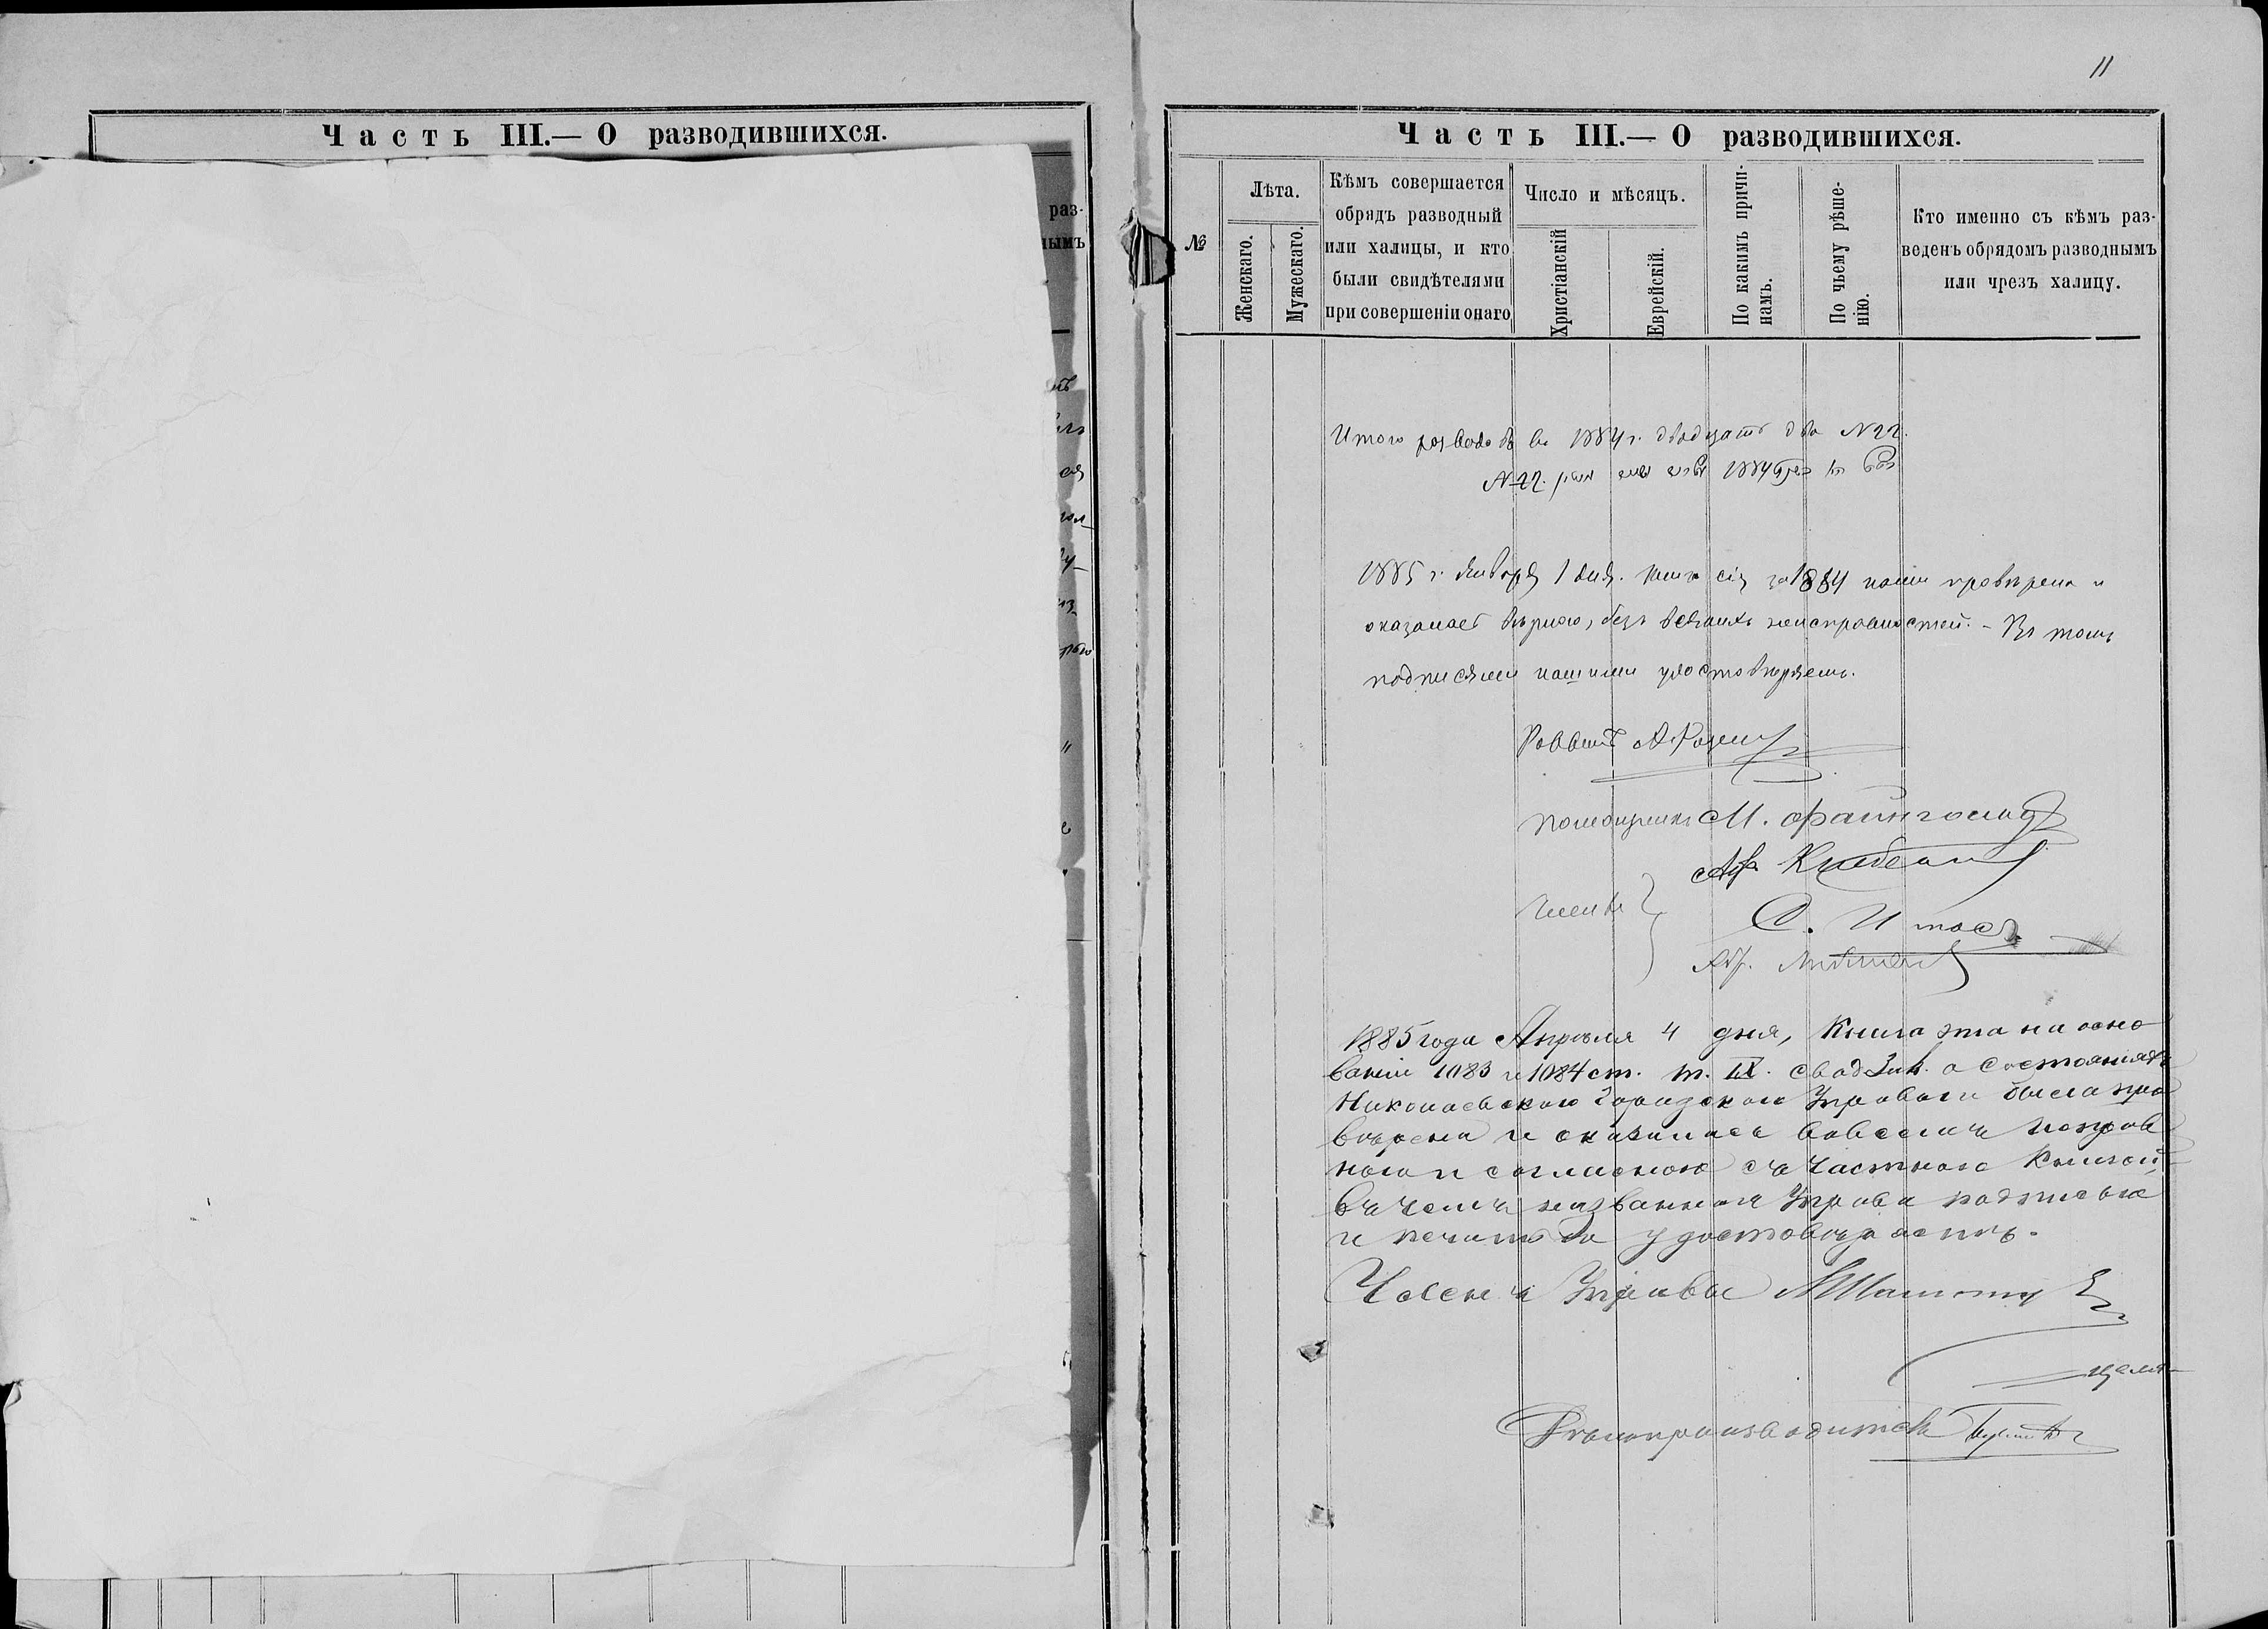 11
Часть III.— О разводившихся.
раз-
нымъ
Часть III.— О разводившихся.
№
Лѣта.
Женскаго.
Мужескаго.
Кѣмъ совершается
обрядъ разводный
или халицы, и кто
были свидѣтелями
при совершеніи онаго
Число и мѣсяцъ.
Христіанскій
Еврейскій.
По какимъ причи-
намъ.
По чьему рѣше-
нію.
Кто именно съ кѣмъ раз-
веденъ обрядомъ разводнымъ
или чрезъ халицу.
Итого разводовъ въ 1884 г. двадцать два №22.
№22. 1884
1885 г. Января 1 дня. Книга сія за 1884 нами провѣрена и
оказалась вѣрною, безъ всякихъ неисправностей. - Въ томъ
подписями нашими удостовѣряемъ.
Раввинъ
Помощникъ М. Файнгольд
Члены
С.
Абр.
1885 года Апрѣля 4 дня, Книга эта на осно
ваніи 1083 и 1084 ст. т. IX. свод Зак. о Состояніяхъ
Николаевскою Городскою Управою была про
вѣрена и оказалась вовсемъ исправ
ною и согласною съ частною Книгой
въ чемъ названная Управа подписью
и печатью удостовѣряетъ.
Членъ Управы
Дѣлопроизводитель